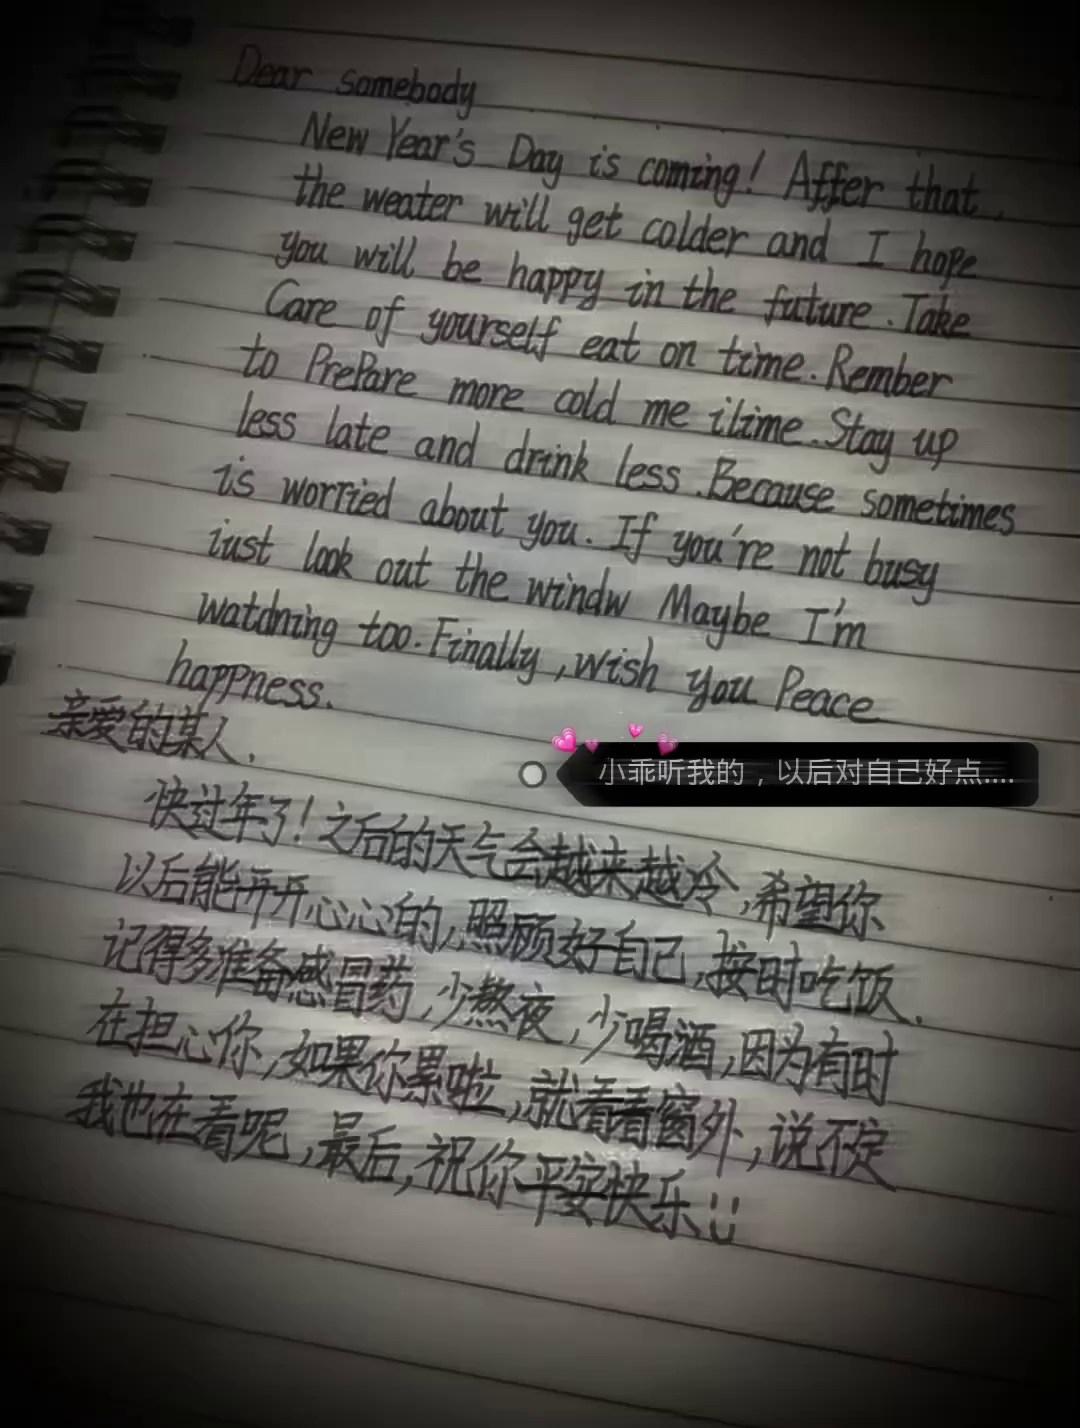 Dear somebody
New Year's Day is coming! Affer that,
the weater will get colder and I hope
you will be happy in the future. Take
Care of yourself eat on time. Rember
to PrePare more cold me ilime. Stay up
less late and drink less. Because sometimes
is worried about you. If you're not busy
iust look out the windw Maybe I'm
watdning too. Finally, wish you Peace
happness.
亲爱的某人.
小乖听我的，以后对自己好点....
快过年了!之后的天气会越来越冷,希望你
以后能开开心心的,照顾好自己,按时吃饭.
记得多准备感冒药,少熬夜,少喝酒,因为有时
在担心你,如果你累啦,就看看窗外,说不定
我也在看呢,最后,祝你平安快乐